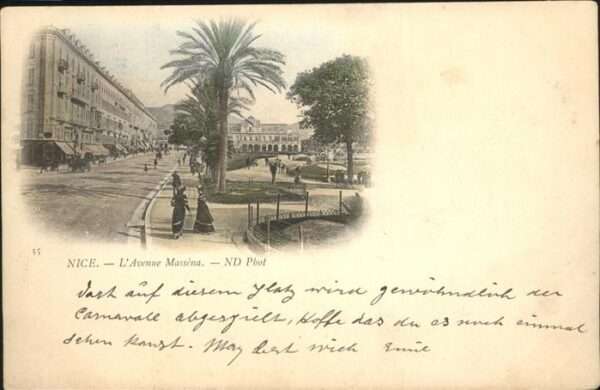 35
NICE. — L'Avenue Masséna. — ND Phot
Just auf diesem Platz wird gewöhndlich der
Carnavall abgespielt, Hoffe das du es noch einmal
sehen kanst. May best wish Emie